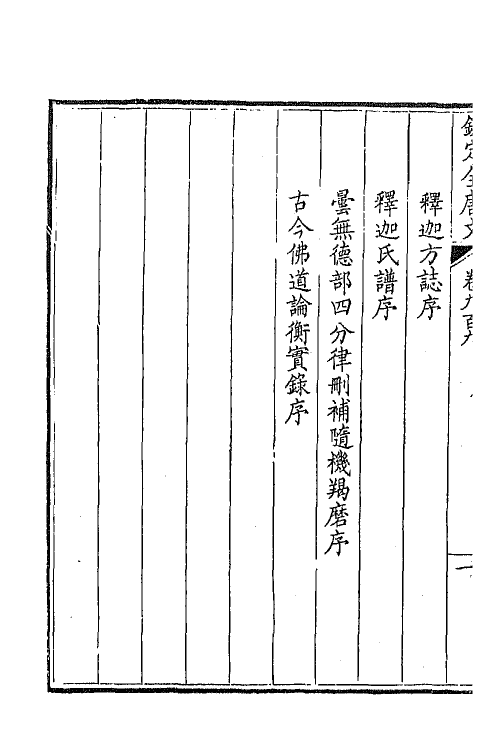 欽定全唐文 卷九百九
釋迦方誌序
釋迦氏譜序
曇無德部四分律刪補隨機羯磨序
古今佛道論衡實錄序